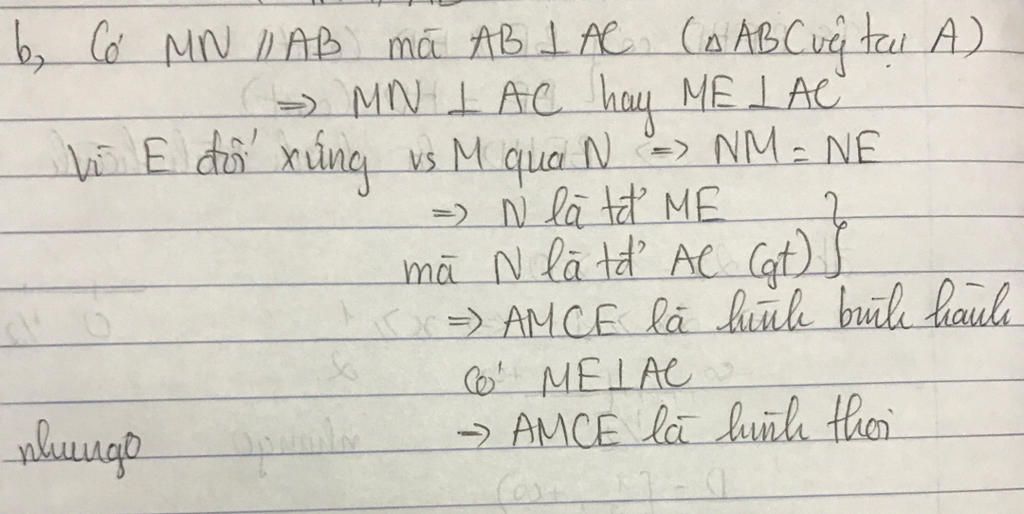 b, Có MN // AB mà AB ⊥ AC (△ABC vg tại A)
=> MN ⊥ AC hay ME ⊥ AC
Vì E đối xứng vs M qua N => NM = NE
=> N là tđ' ME
mà N là tđ' AC (gt) }
=> AMCE là hình bình hành
Có ME ⊥ AC
-> AMCE là hình thoi
nhungo